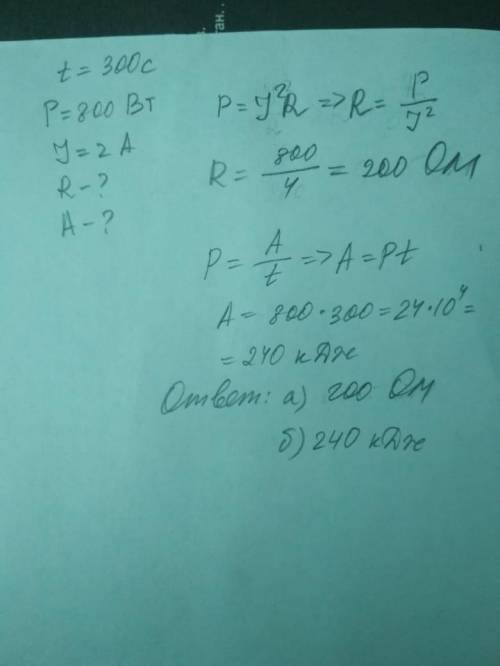 тан..
t = 300 с
P = 800 Вт
J = 2 А
R - ?
A - ?
P = J²R => R = P/J²
R = 800/4 = 200 Ом
P = A/t => A = Pt
A = 800 · 300 = 24 · 10⁴ =
= 240 кДж
Ответ: а) 200 Ом
б) 240 кДж